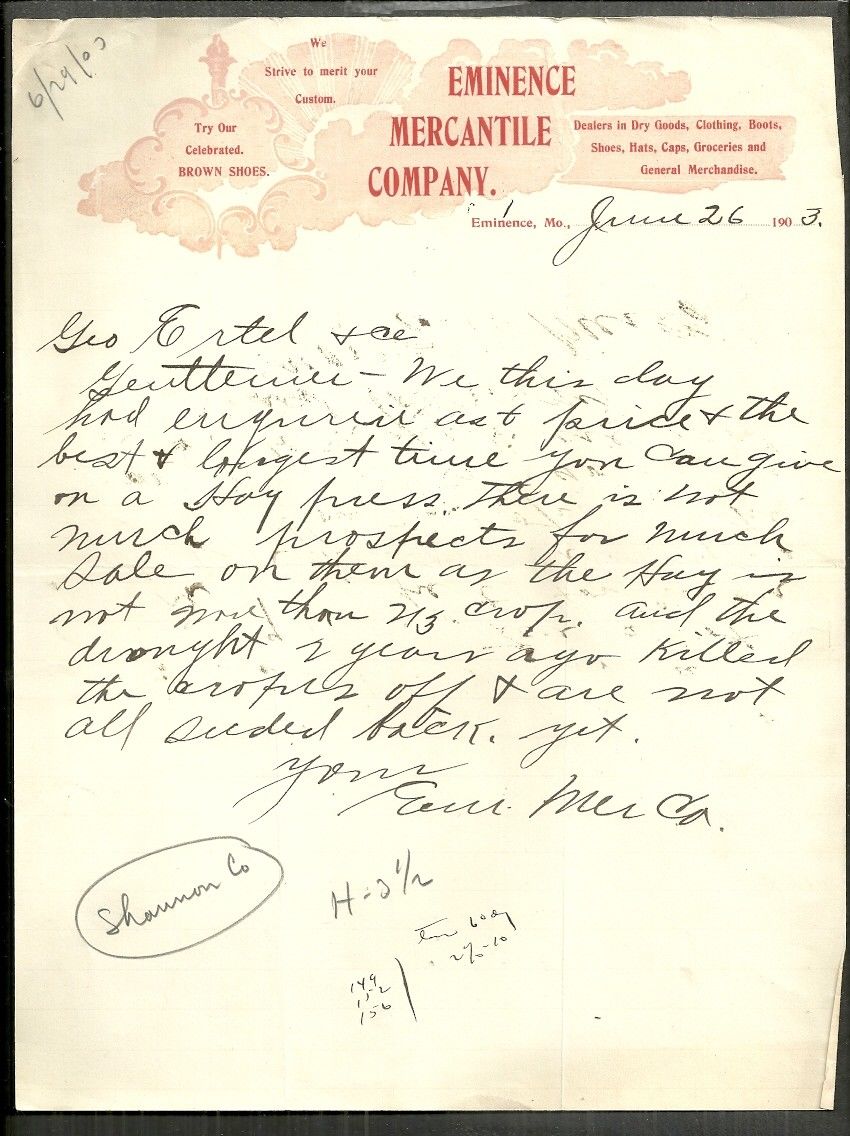 6/29/03
We
Strive to merit your
Custom.
Try Our
Celebrated.
BROWN SHOES.
EMINENCE
MERCANTILE
COMPANY.
Dealers in Dry Goods, Clothing, Boots,
Shoes, Hats, Caps, Groceries and
General Merchandise.
Eminence, Mo., June 26 1903.
Geo Ertel & Co
Gentlemen - We this day
had enqurie as t price & the
best & longest time you can give
on a Hay press. There is not
much prospects for much
Sale on them as the Hay is
not more than 2/3 crop. and the
drought 2 years ago Killed
the crops off & are not
all seeded back. yet.
Yours
Em. Mer Co.
Shannon Co
H - 3 1/2
149
152
156